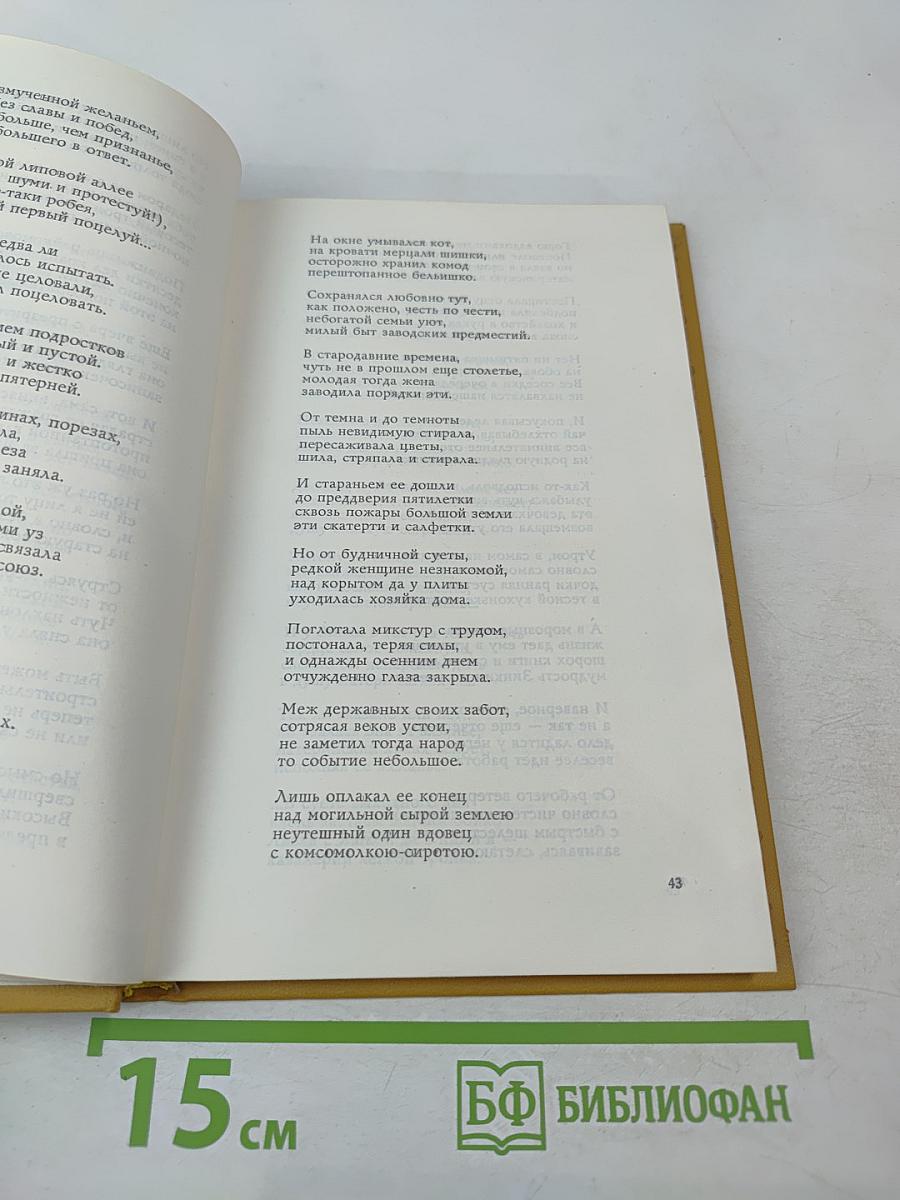 змученной желаньем,
без славы и побед,
больше, чем признанье,
большего в ответ.
ой липовой аллее
шуми и протестуй!),
-таки робея,
й первый поцелуй...
едва ли
лось испытать.
е целовали,
л поцеловать.
ием подростков
ый и пустой.
и жестко
пятерней.
инах, порезах,
ла,
еза
заняла.
ой,
ми уз
связала
союз.
х.
На окне умывался кот,
на кровати мерцали шишки,
осторожно хранил комод
перештопанное бельишко.
Сохранялся любовно тут,
как положено, честь по чести,
небогатой семьи уют,
милый быт заводских предместий.
В стародавние времена,
чуть не в прошлом еще столетье,
молодая тогда жена
заводила порядки эти.
От темна и до темноты
пыль невидимую стирала,
пересаживала цветы,
шила, стряпала и стирала.
И стараньем ее дошли
до преддверия пятилетки
сквозь пожары большой земли
эти скатерти и салфетки.
Но от будничной суеты,
редкой женщине незнакомой,
над корытом да у плиты
уходилась хозяйка дома.
Поглотала микстур с трудом,
постонала, теряя силы,
и однажды осенним днем
отчужденно глаза закрыла.
Меж державных своих забот,
сотрясая веков устои,
не заметил тогда народ
то событие небольшое.
Лишь оплакал ее конец
над могильной сырой землею
неутешный один вдовец
с комсомолкою-сиротою.
43
15 см
БФ БИБЛИОФАН